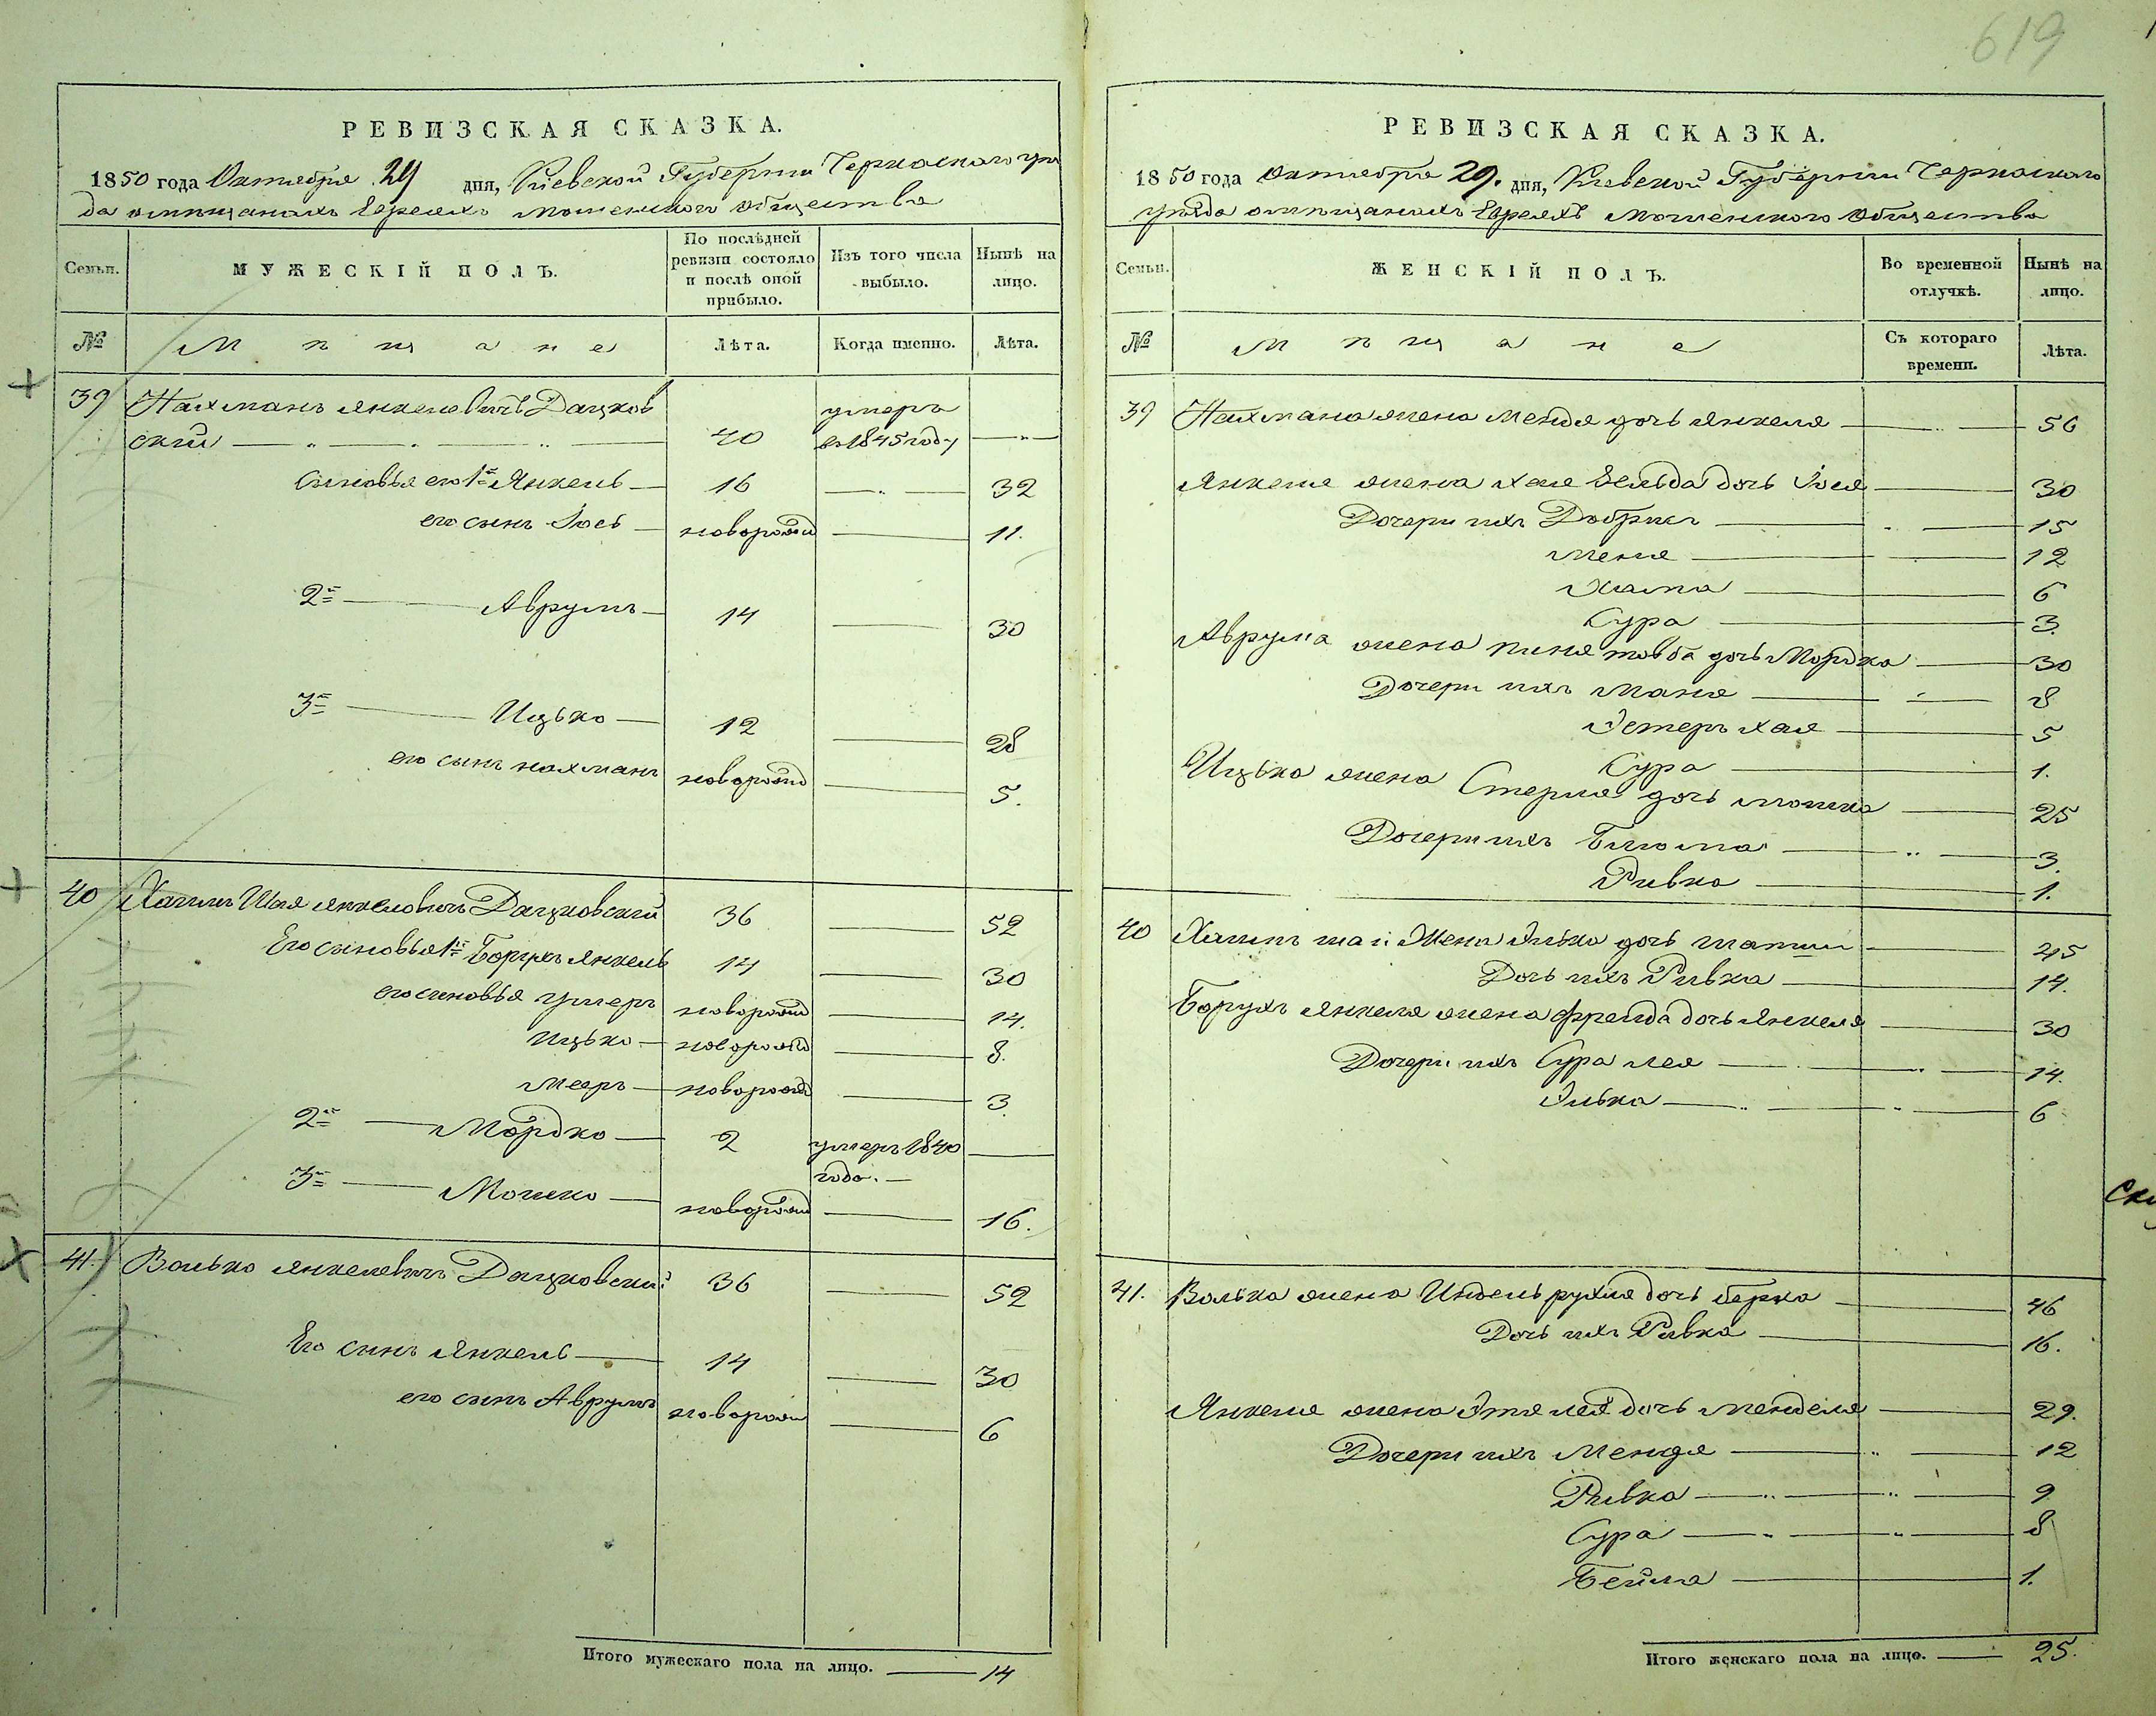 619
РЕВИЗСКАЯ СКАЗКА.
1850 года Октября 29 дня, Киевской Губернии Черкаскаго уѣз
да о мѣщанахъ Евреяхъ Мошенского общества
Семьи.
МУЖЕСКІЙ ПОЛЪ.
По послѣдней ревизіи состояло и послѣ оной прибыло.
Изъ того числа выбыло.
Нынѣ на лицо.
№ Мѣщане Лѣта. Когда именно. Лѣта.
39 Нахманъ Янкелевичъ Дацков умеръ
ский 40 въ 1845 году
Сыновья его 1й Янкель 16 32
его сынъ Іось новорожд 11.
2й Аврумъ 14 30
3й Ицько 12 28
его сынъ Нахманъ новорожд 5.
40 Хаимъ Шая Янкеловичъ Дацковский 36 52
Его сыновья 1й Борухъ Янкель 14 30
его сыновья новорожд 14.
Ицько новорожд 8.
Мееръ новорожд 3.
2й Мордко 2 умеръ 1840
года.
3й Мошко новорожд 16.
41. Волько Янкелевичъ Дацковский 36 52
Его сынъ Янкель 14 30
его сынъ Аврумъ новорожд 6
Итого мужескаго пола на лицо. 14
РЕВИЗСКАЯ СКАЗКА.
1850 года Октября 29. дня, Киевской Губернии Черкаскаго
уѣзда о мѣщанахъ Евреяхъ Мошенского Общества
Семьи.
ЖЕНСКІЙ ПОЛЪ.
Во временной отлучкѣ.
Нынѣ на лицо.
№ Мѣщане Съ котораго времени. Лѣта.
39 Нахмана жена Менця дочь Янкеля 56
Янкеля жена Хая Зельда дочь Іося 30
Дочери ихъ Добришъ 15
Меня 12
Хама 6
Сура 3.
Аврума жена товба дочь Мордка 30
Дочери ихъ Маня 8
Эстеръ Хая 5
Сура 1.
Ицька жена Стерля дочь Мошка 25
Дочери ихъ Блюма 3.
Ривка 1.
40 Хаимъ Шаи Жена Элька дочь 45
Дочь ихъ Ривка 14.
Борухъ Янкеля жена Фрейда дочь Янкеля 30
Дочери ихъ Сура Лея 14.
Элька 6
41. Волька жена рухля дочь Берка 46
Дочь ихъ Ривка 16.
Янкеля жена Этя Лея дочь Менделя 29.
Дочери ихъ Менця 12
Ривка 9
Сура 8
Бейла 1.
Итого женскаго пола на лицо. 25.